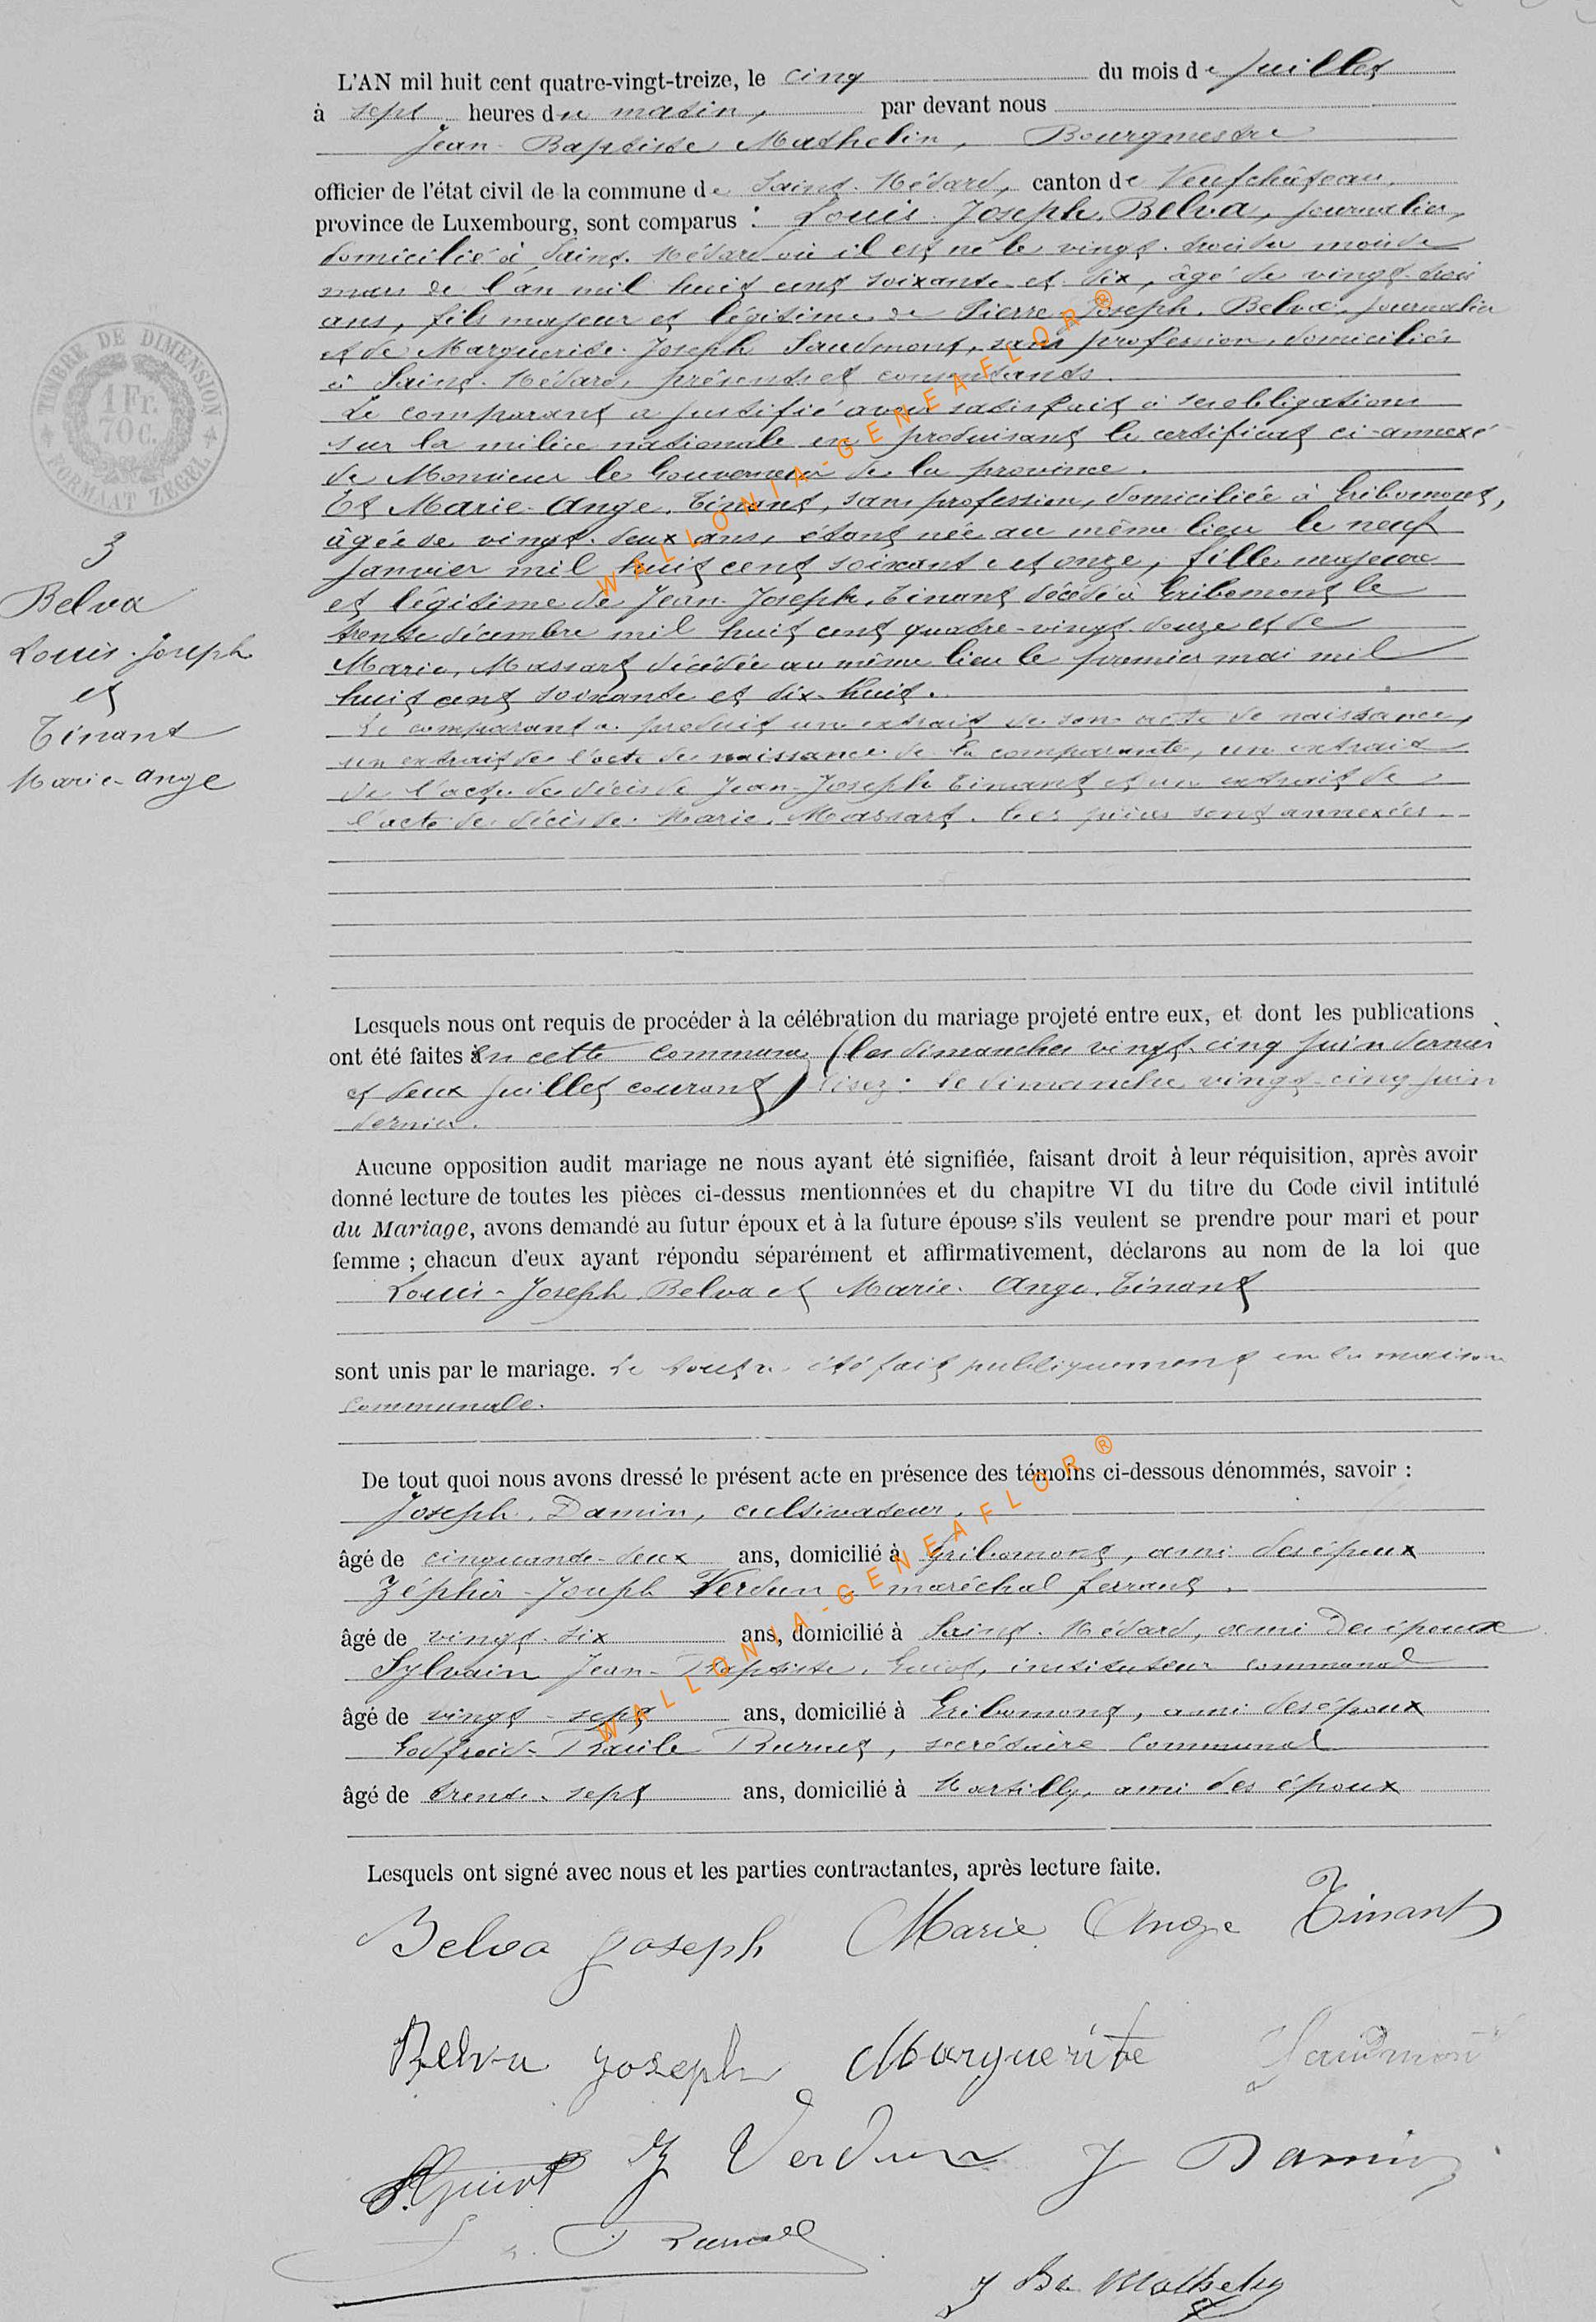 L'AN mil huit cent quatre-vingt-treize, le cinq du mois de juillet
à sept heures du matin, par devant nous
Jean-Baptiste Mathelin, Bourgmestre
officier de l'état civil de la commune de Saint-Médard, canton de Neufchâteau,
province de Luxembourg, sont comparus : Louis-Joseph Belva, journalier,
domicilié à Saint-Médard où il est né le vingt-trois du mois de
mars de l'an mil huit cent soixante et dix, âgé de vingt-trois
ans, fils majeur et légitime de Pierre-Joseph Belva, journalier
et de Marguerite-Joseph Saudmont, sans profession, domiciliés
à Saint-Médard, présents et consentants.
Le comparant a justifié avoir satisfait à ses obligations
sur la milice nationale en produisant le certificat ci-annexé
de Monsieur le Gouverneur de la province.
Et Marie-Ange Tinant, sans profession, domiciliée à Gribomont,
âgée de vingt-deux ans, étant née au même lieu le neuf
janvier mil huit cent soixante et onze, fille majeure
et légitime de Jean-Joseph Tinant décédé à Gribomont le
trente décembre mil huit cent quatre-vingt-douze et de
Marie Massart décédée au même lieu le premier mai mil
huit cent soixante et dix-huit.
Le comparant a produit un extrait de son acte de naissance,
un extrait de l'acte de naissance de la comparante, un extrait
de l'acte de décès de Jean-Joseph Tinant et un extrait de
l'acte de décès de Marie Massart. Ces pièces sont annexées.
TIMBRE DE DIMENSION
1 Fr.
70 c.
FORMAAT ZEGEL
3
Belva
Louis-Joseph
et
Tinant
Marie-Ange
Lesquels nous ont requis de procéder à la célébration du mariage projeté entre eux, et dont les publications
ont été faites en cette commune (les dimanches vingt-cinq juin dernier
et deux juillet courant) lisez : le dimanche vingt-cinq juin
dernier.
Aucune opposition audit mariage ne nous ayant été signifiée, faisant droit à leur réquisition, après avoir
donné lecture de toutes les pièces ci-dessus mentionnées et du chapitre VI du titre du Code civil intitulé
du Mariage, avons demandé au futur époux et à la future épouse s'ils veulent se prendre pour mari et pour
femme ; chacun d'eux ayant répondu séparément et affirmativement, déclarons au nom de la loi que
Louis-Joseph Belva et Marie-Ange Tinant
sont unis par le mariage. Le tout a été fait publiquement en la maison
communale.
De tout quoi nous avons dressé le présent acte en présence des témoins ci-dessous dénommés, savoir :
Joseph Damin, cultivateur,
âgé de cinquante-deux ans, domicilié à Gribomont, ami des époux
Zéphir-Joseph Verdun, maréchal ferrant,
âgé de vingt-six ans, domicilié à Saint-Médard, ami des époux
Sylvain Jean-Baptiste Guiot, instituteur communal
âgé de vingt-sept ans, domicilié à Gribomont, ami des époux
Godfroid- secrétaire communal
âgé de trente-sept ans, domicilié à Martilly, ami des époux
Lesquels ont signé avec nous et les parties contractantes, après lecture faite.
Belva Joseph Marie Ange Tinant
Belva Joseph Marguerite Saudmont
S. Guiot Z Verdun J Damin
J Bte Mathelin
WALLONIA-GENEAFLOR ®
WALLONIA-GENEAFLOR ®